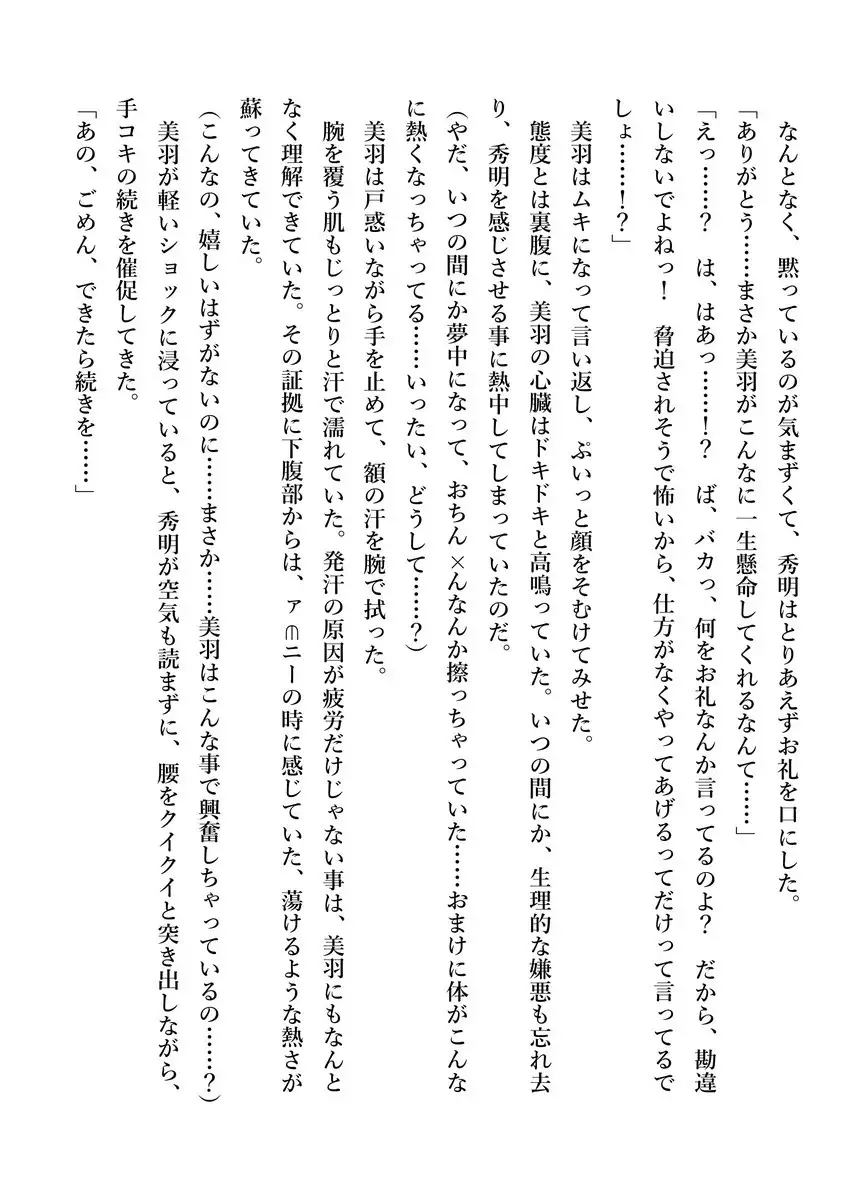 なんとなく、黙っているのが気まずくて、秀明はとりあえずお礼を口にした。
「ありがとう……まさか美羽がこんなに一生懸命してくれるなんて……」
「えっ……？　は、はあっ……！？　ば、バカっ、何をお礼なんか言ってるのよ？　だから、勘違
いしないでよねっ！　脅迫されそうで怖いから、仕方がなくやってあげるってだけって言ってるで
しょ……！？」
美羽はムキになって言い返し、ぷいっと顔をそむけてみせた。
態度とは裏腹に、美羽の心臓はドキドキと高鳴っていた。いつの間にか、生理的な嫌悪も忘れ去
り、秀明を感じさせる事に熱中してしまっていたのだ。
（やだ、いつの間にか夢中になって、おちん×んなんか擦っちゃっていた……おまけに体がこんな
に熱くなっちゃってる……いったい、どうして……？）
美羽は戸惑いながら手を止めて、額の汗を腕で拭った。
腕を覆う肌もじっとりと汗で濡れていた。発汗の原因が疲労だけじゃない事は、美羽にもなんと
なく理解できていた。その証拠に下腹部からは、ァ⋒ニーの時に感じていた、蕩けるような熱さが
蘇ってきていた。
（こんなの、嬉しいはずがないのに……まさか……美羽はこんな事で興奮しちゃっているの……？）
美羽が軽いショックに浸っていると、秀明が空気も読まずに、腰をクイクイと突き出しながら、
手コキの続きを催促してきた。
「あの、ごめん、できたら続きを……」